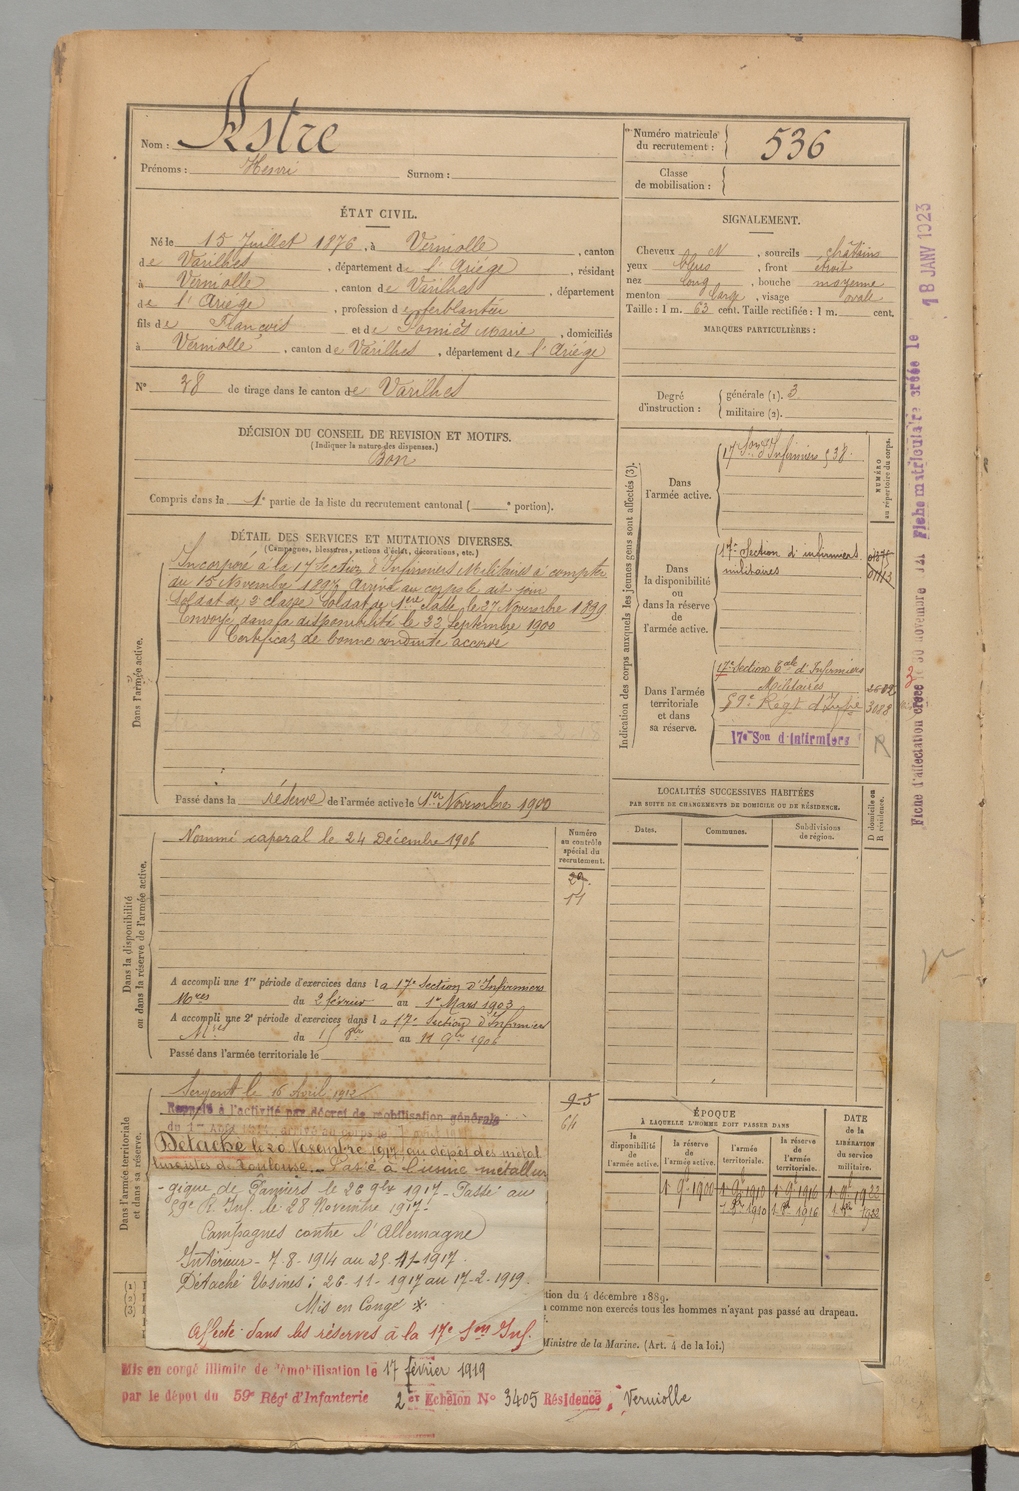 Nom : Astre
Prénoms : Henri Surnom :
Numéro matricule
du recrutement : 536
Classe
de mobilisation :
ÉTAT CIVIL.
Né le 15 Juillet 1876, à Verniolle, canton
de Varilhes, département de l'Ariége, résidant
à Verniolle, canton de Varilhes, département
de l'Ariége, profession de ferblantier
fils de François et de Pomiès Marie, domiciliés
à Verniolle, canton de Varilhes, département de l'Ariége
No 38 de tirage dans le canton de Varilhes
DÉCISION DU CONSEIL DE REVISION ET MOTIFS.
(Indiquer la nature des dispenses.)
Bon
Compris dans la 1e partie de la liste du recrutement cantonal ( e portion).
SIGNALEMENT.
Cheveux N, sourcils châtains
yeux bleus, front étroit
nez long, bouche moyenne
menton large, visage ovale
Taille : 1 m. 63 cent. Taille rectifiée : 1 m. cent.
MARQUES PARTICULIÈRES :
Degré
d'instruction :
générale (1). 3
militaire (2).
DÉTAIL DES SERVICES ET MUTATIONS DIVERSES.
(Campagnes, blessures, actions d'éclat, décorations, etc.)
Dans l'armée active.
Incorporé à la 17 Section d'Infirmiers Militaires à compter
du 15 Novembre 1897. Arrivé au corps le dit jour
Soldat de 2 classe Soldat de 1ère classe le 27 Novembre 1899
Envoyé dans la disponibilité le 22 Septembre 1900
Certificat de bonne conduite accordé
Passé dans la réserve de l'armée active le 1er Novembre 1900
Indication des corps auxquels les jeunes gens sont affectés (3).
NUMÉRO
au répertoire du corps.
Dans
l'armée active.
17e Son d'Infirmiers 538
Dans
la disponibilité
ou
dans la réserve
de
l'armée active.
17e Section d'infirmiers
militaires
Dans l'armée
territoriale
et dans
sa réserve.
17e Section Eale d'Infirmiers
Militaires
59e Régt d'Infie 3088
17e Son d'infirmiers
R
LOCALITÉS SUCCESSIVES HABITÉES
PAR SUITE DE CHANGEMENTS DE DOMICILE OU DE RÉSIDENCE.
Dates.
Communes.
Subdivisions
de région.
D domicile ou
R résidence.
Dans la disponibilité
ou dans la réserve de l'armée active.
Nommé caporal le 24 Décembre 1906
Numéro
au contrôle
spécial du
recrutement.
29
11
A accompli une 1re période d'exercices dans la 17e Section d'Infirmiers
Mres du 2 février au 1er Mars 1903
A accompli une 2e période d'exercices dans la 17e Section d'Infirmiers
Mres du 15 8bre au 11 9bre 1906
Passé dans l'armée territoriale le
Dans l'armée territoriale
et dans sa réserve.
Sergent le 16 Avril 1912
Rappelé à l'activité par décret de mobilisation générale
Détaché le 20 Novembre 1917 au dépôt des métal
lurgistes de Toulouse. Passé à l'usine métallur
-gique de Pamiers le 26 9bre 1917 - Passé au
59e R. Inf. le 28 Novembre 1917.
Campagnes contre l'Allemagne
Intérieur - 7-8-1914 au 25-11-1917.
Détaché Usines : 26-11-1917 au 17-2-1919.
Mis en Congé
Affecté dans les réserves à la 17e Son Inf.
ÉPOQUE
À LAQUELLE L'HOMME DOIT PASSER DANS
la
disponibilité
de
l'armée active.
la réserve
de
l'armée active.
l'armée
territoriale.
la réserve
de
l'armée
territoriale.
DATE
de la
LIBÉRATION
du service
militaire.
1 9e 1900 1 9e 1910 1 9e 1916 1 9e 1922
1910 1916 1922
(1)
(2)
(3)
tion du 4 décembre 1889.
comme non exercés tous les hommes n'ayant pas passé au drapeau.
Ministre de la Marine. (Art. 4 de la loi.)
Mis en congé illimité de démobilisation le 17 février 1919
par le dépôt du 59e Régt d'Infanterie 2e Echelon No 3405 Résidence Verniolle
Fiche matriculaire créée le 18 JANV 1923